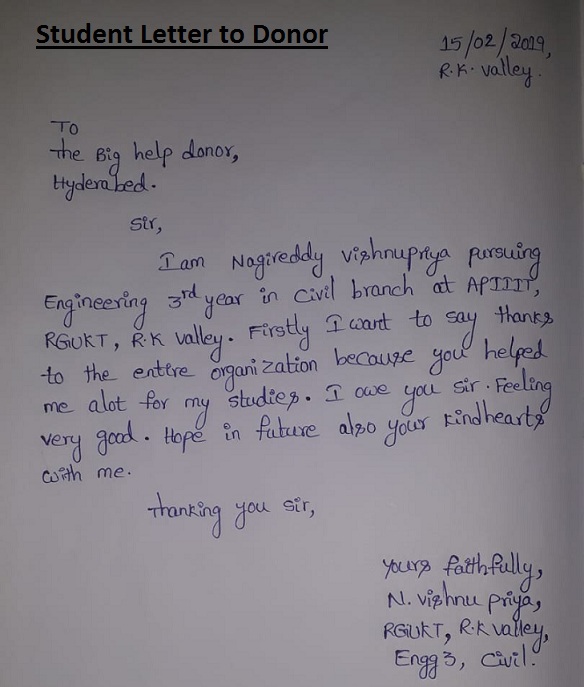 Student Letter to Donor
15/02/2019,
R.K. valley.
To
The Big help donor,
Hyderabed.
Sir,
I am Nagireddy vishnupriya pursuing
Engineering 3rd year in civil branch at APIIIT,
RGUKT, R.K valley. Firstly I want to say thanks
to the entire organization because you helped
me alot for my studies. I owe you sir. Feeling
very good. Hope in future also your kindhearts
with me.
Thanking you sir,
yours faithfully,
N. vishnu priya,
RGUKT, R.K valley,
Engg 3, civil.